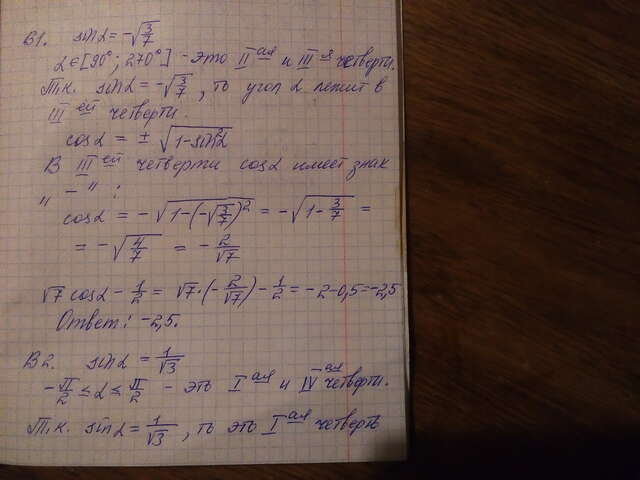 В1. sinα = -√(3/7)
α ∈ [90°; 270°] - это II ая и III я четверти.
Т.к. sinα = -√(3/7), то угол α лежит в
III ей четверти.
cosα = ± √(1-sin²α)
В III ей четверти cosα имеет знак
„ - " :
cosα = -√(1-(-√(3/7))²) = -√(1-3/7) =
= -√(4/7) = -2/√7
√7 cosα - 1/2 = √7·(-2/√7) - 1/2 = -2-0,5=-2,5
Ответ: -2,5.
В2. sinα = 1/√3
-π/2 ≤ α ≤ π/2 - это I ая и IV ая четверти.
Т.к. sinα = 1/√3, то это I ая четверть